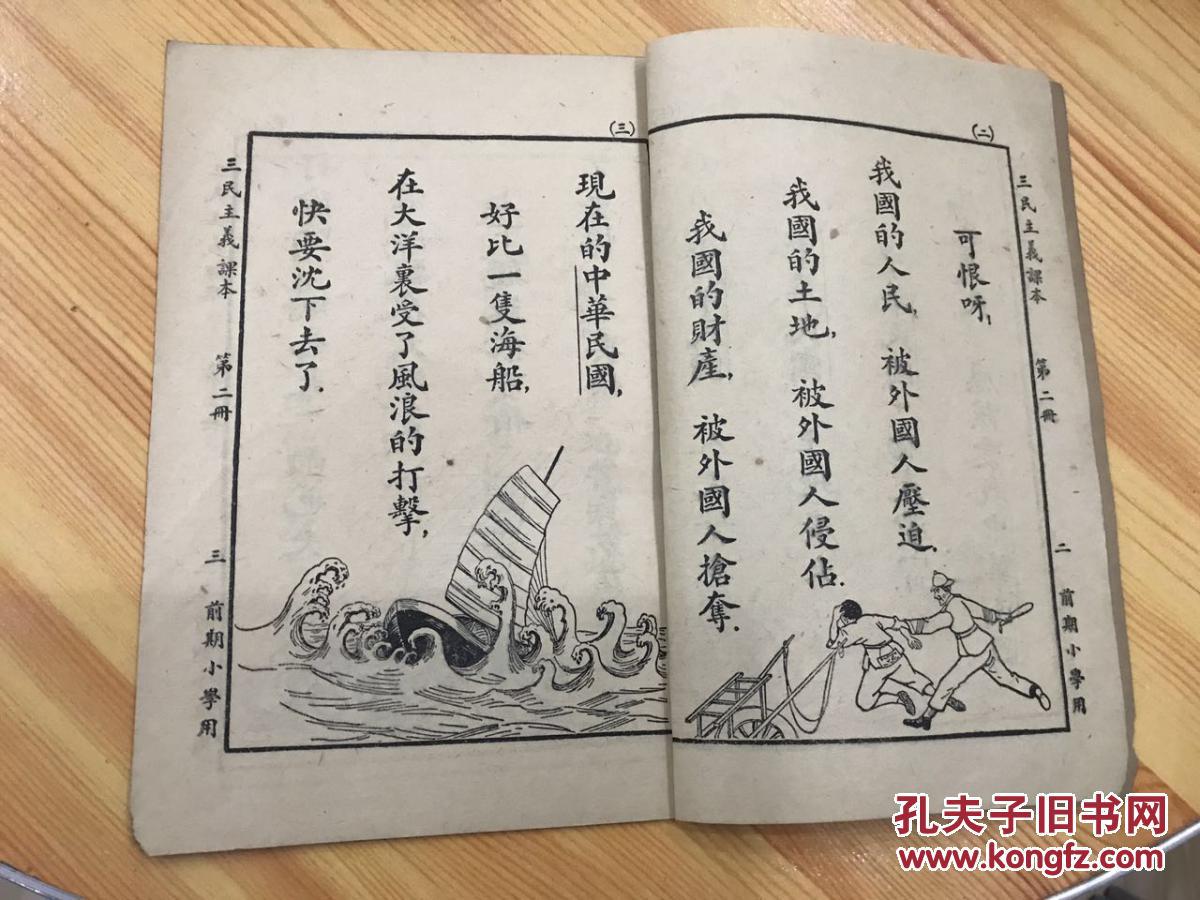 (二)
三民主義課本 第二冊 二 前期小學用
可恨呀,
我國的人民, 被外國人壓迫,
我國的土地, 被外國人侵佔.
我國的財產, 被外國人搶奪.
(三)
現在的中華民國,
好比一隻海船,
在大洋裏受了風浪的打擊,
快要沈下去了.
三民主義課本 第二冊 三 前期小學用
孔夫子旧书网
www.kongfz.com